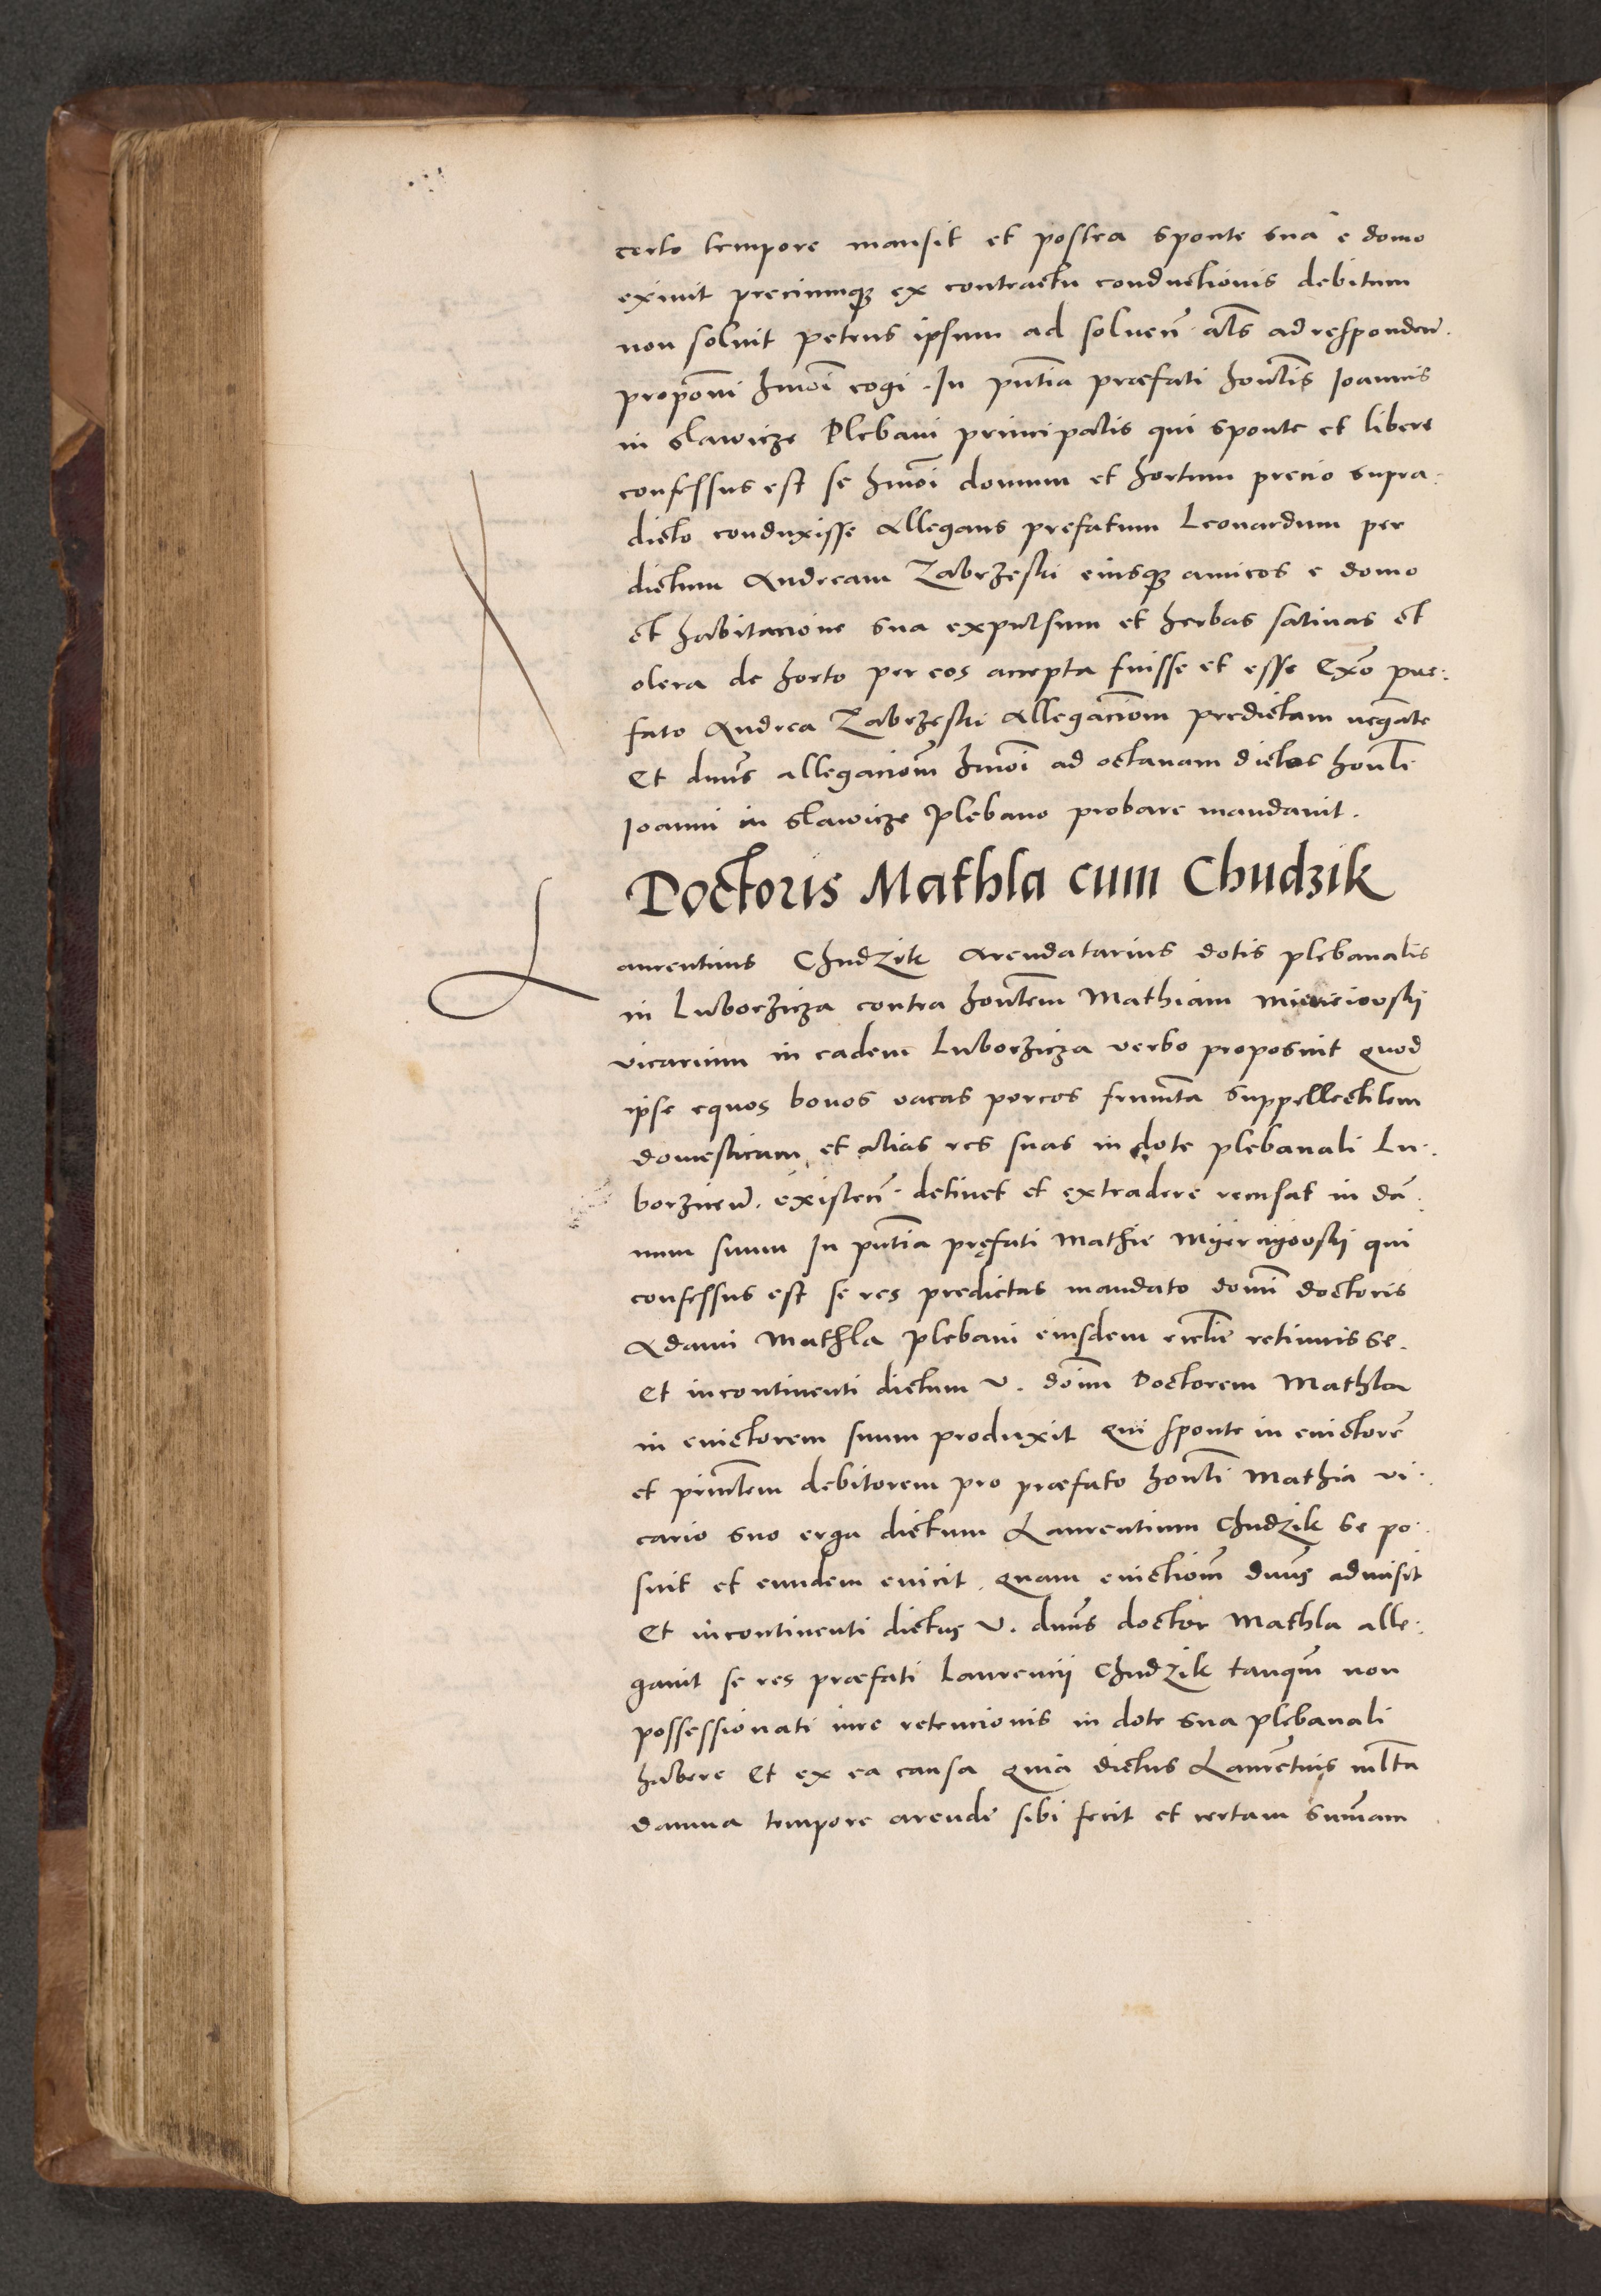 certo tempore mansit et postea sponte sua e domo
exiuit preciumq(ue) ex contractu conductionis debitum
non soluit petens ipsum ad soluen̄ al̄s ad responden̄.
propōni hmōi cogi. In pn̄tia præfati hon̄lis Ioannis
in Slawicze Plebani principalis qui sponte et libere
confessus est se hmōi domum et hortum precio supra⸗
dicto conduxisse Allegans prefatum Leonardum per
dictum Andream Zabrzeski eiusq(ue) amicos e domo
et habitacione sua expulsum et herbas satiuas et
olera de horto per eos accepta fuisse et esse Exō præ⸗
fato Andrea Zabrzeski Allegaciōm predictam negāte
Et dn̄us allegaciōm hmōi ad octauam dictos hon̄li
Ioanni in Slawicze Plebano probare mandauit.
Doctoris Mathla cum Chudzik
Laurentius Chudzik Arendatarius dotis plebanalis
in Luborzicza contra hon̄lem Mathiam
vicarium in eadem Luborzicza verbo proposuit quod
ipse equos boues vacas porcos frum̄ta suppellectilem
domesticam et alias res suas in dote plebanali Lu⸗
borzicen̄. existen̄. detinet et extradere recusat in dā⸗
num suum In pn̄tia pręfati Mathie Myerzyiowskij qui
confessus est se res predictas mandato domī doctoris
Adami Mathla plebani eiusdem ecclie retinuisse.
Et incontinenti dictum V. doīm Doctorem Mathla
in euictorem suum produxit Qui sponte in euictorē
et prin̄lem debitorem pro præfato hon̄li Mathia vi⸗
cario suo erga dictum Laurentium Chudzik se po⸗
suit et eundem euicit. quam euictiōm dn̄us admisit
Et incontinenti dictus V. dn̄us doctor Mathla alle⸗
gauit se res præfati Laurencij Chudzik tanqm̄ non
possessionati iure retencionis in dote sua plebanali
habere Et ex ea causa quia dictus Laurētius mlta
damna tempore arende sibi fecit et certam sum̄am